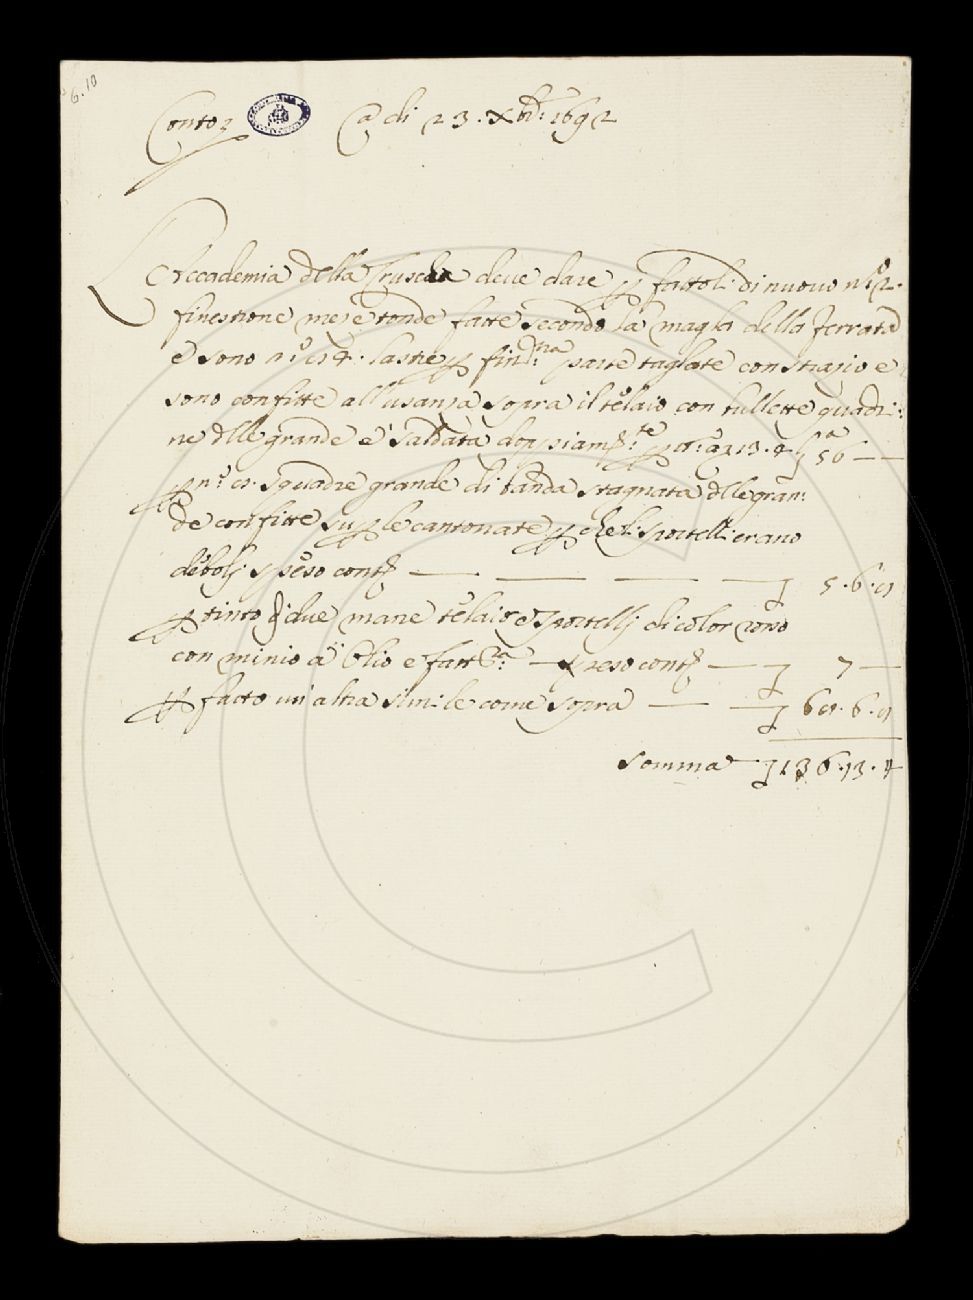 6.10
Conto
A di 23. Xbre: 1692
L'Accademia della Crusca deve dare p fattoli di nuovo n:o 2.
finestrone meze tonde fatte secondo la maglia della ferrata
e sono n:o 84. lastre p finestra parte tagliate con strazio e
sono confitte all'usanza sopra il telaio con bullette quadri:
ne delle grande e saldata doppiamte p 13.4 56 —
p n:o 8. squadre grande di banda stagnata delle gran:
de confitte su p le cantonate p che li sportelli erano
deboli 5.6.8
p tinto di due mane telaio e sportelli di color roso
con minio a olio 7 —
p fatto un'altra simile come sopra 68.6.8
Somma 136.13.4